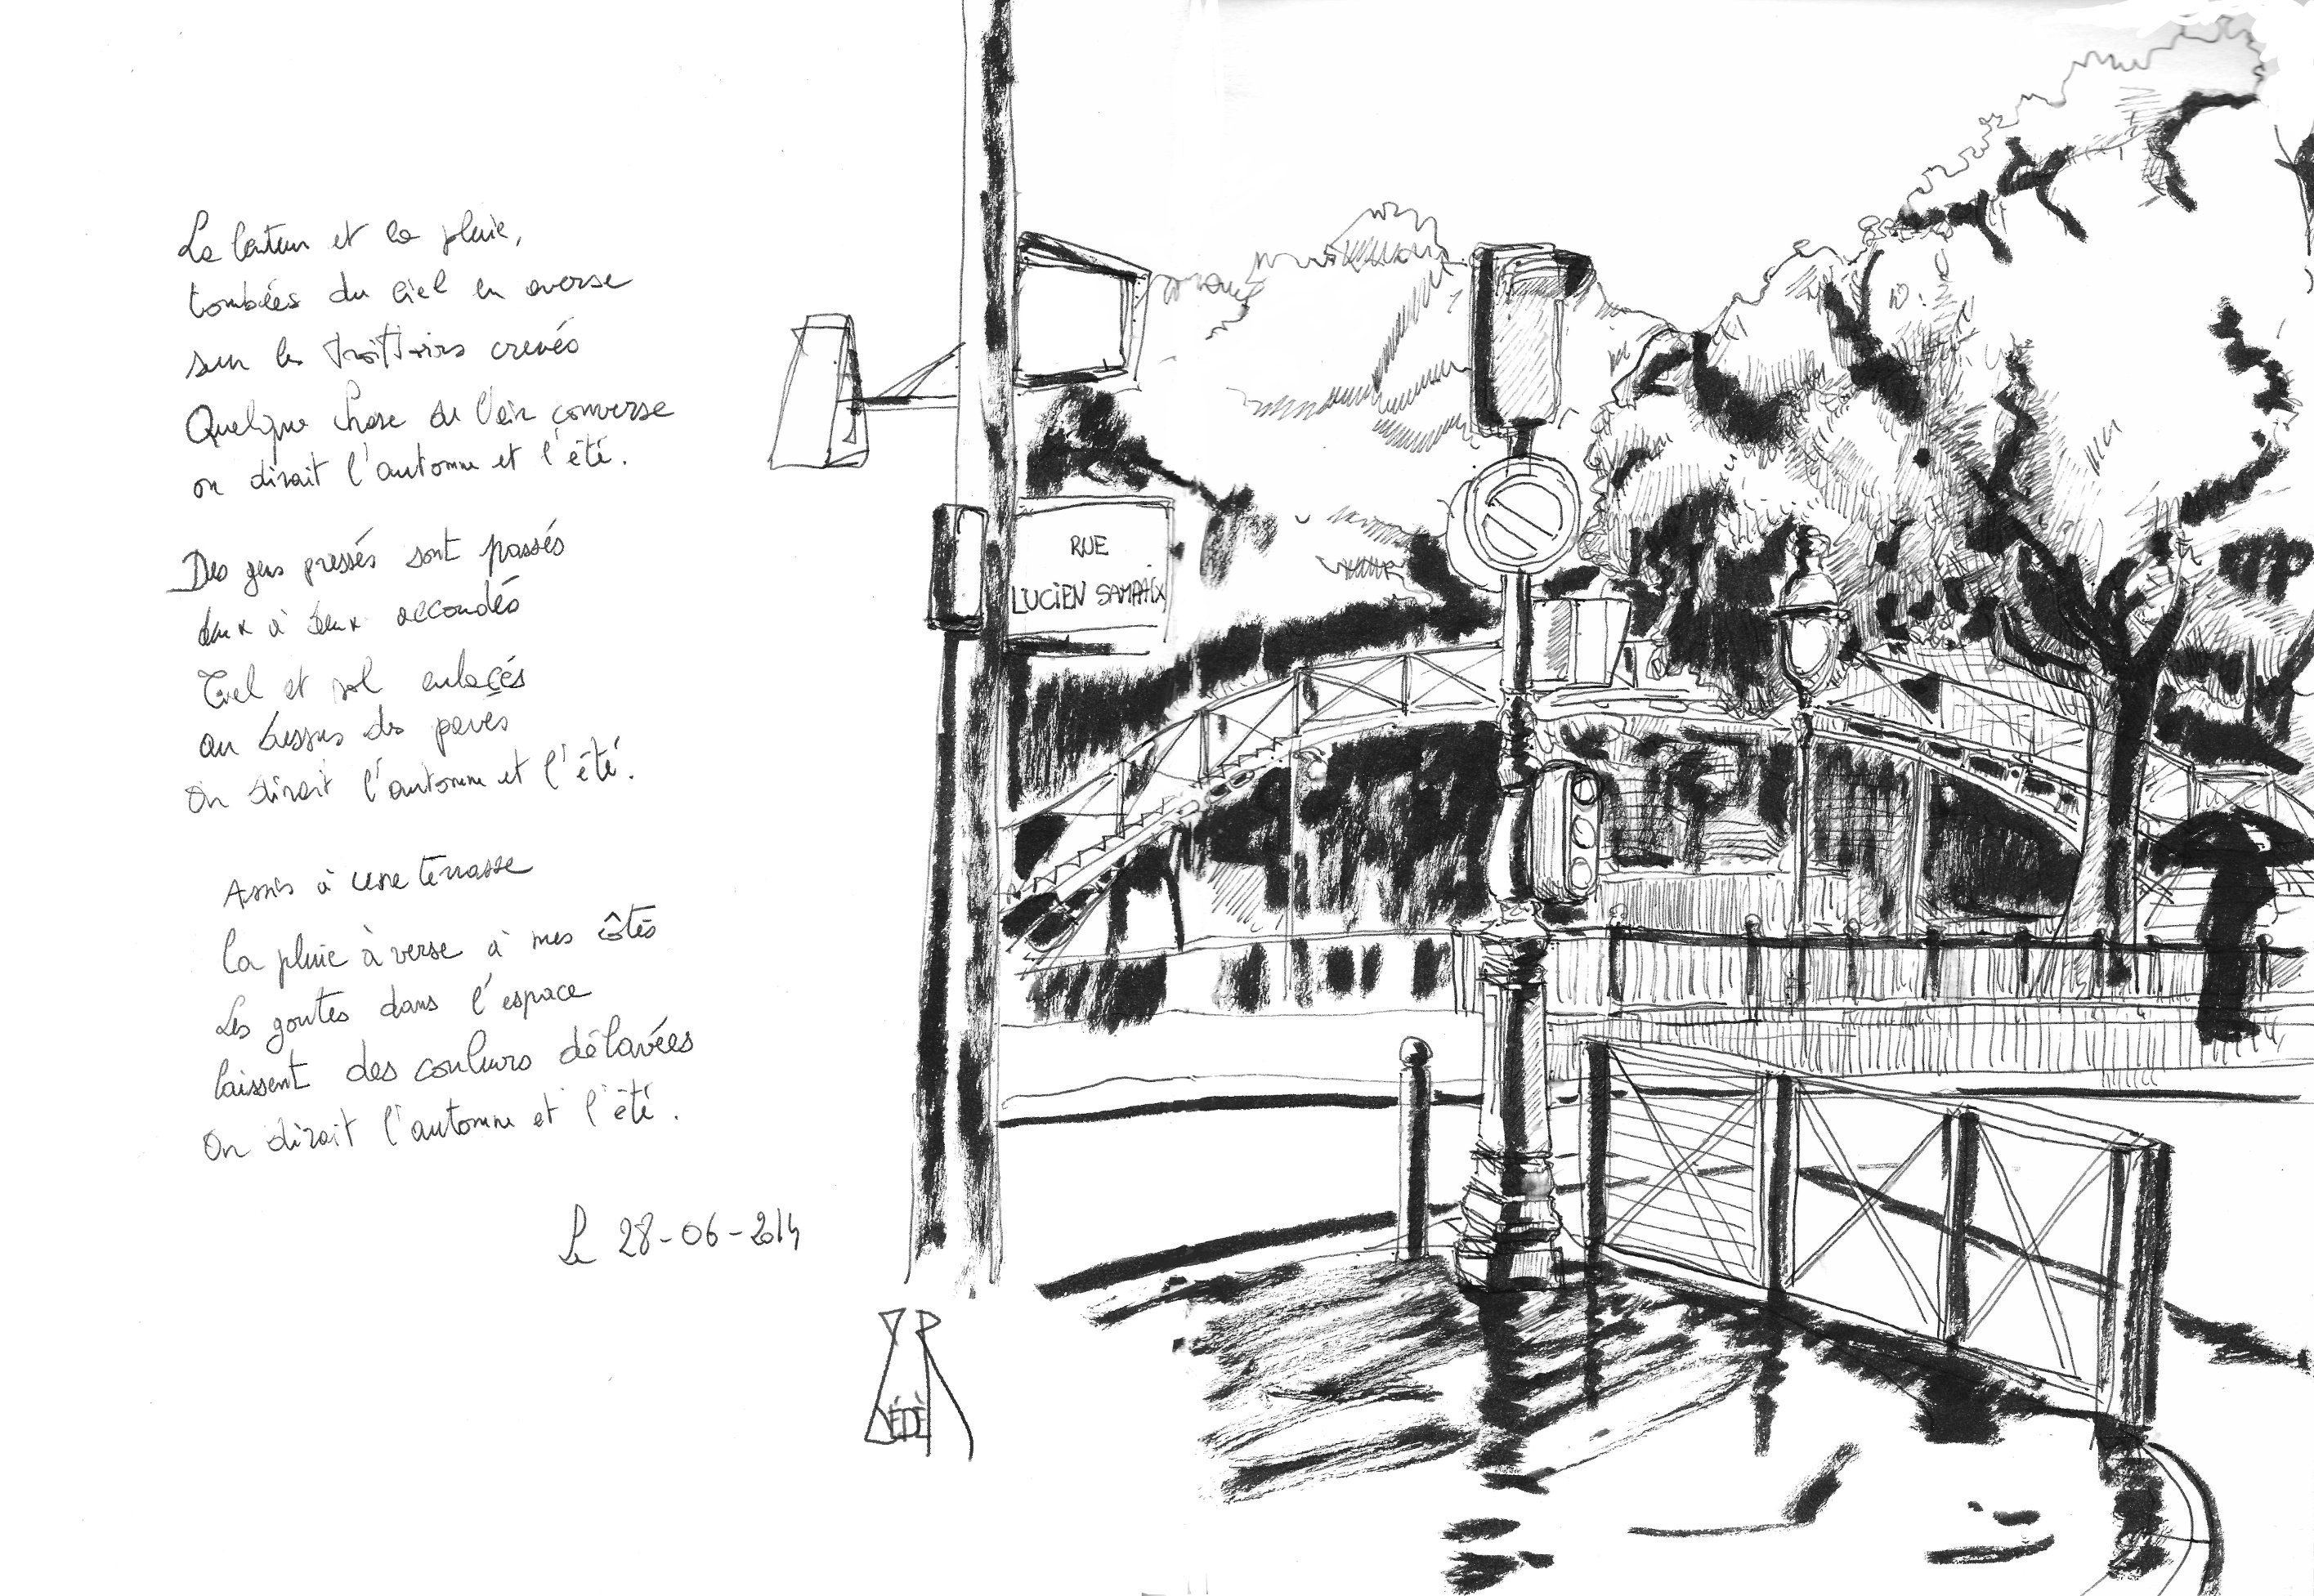 La lenteur et la pluie,
tombées du ciel en averse
sur les trottoirs crevés
Quelque chose de l'air converse
on dirait l'automne et l'été.
Des gens pressés sont passés
deux à deux accoudés
Ciel et sol enlacés
au dessus des pavés
On dirait l'automne et l'été.
Assis à une terrasse
la pluie à verse à mes côtés
Les goutes dans l'espace
laissent des couleurs délavées
On dirait l'automne et l'été.
Le 28-06-2014
RUE
LUCIEN SAMPAIX